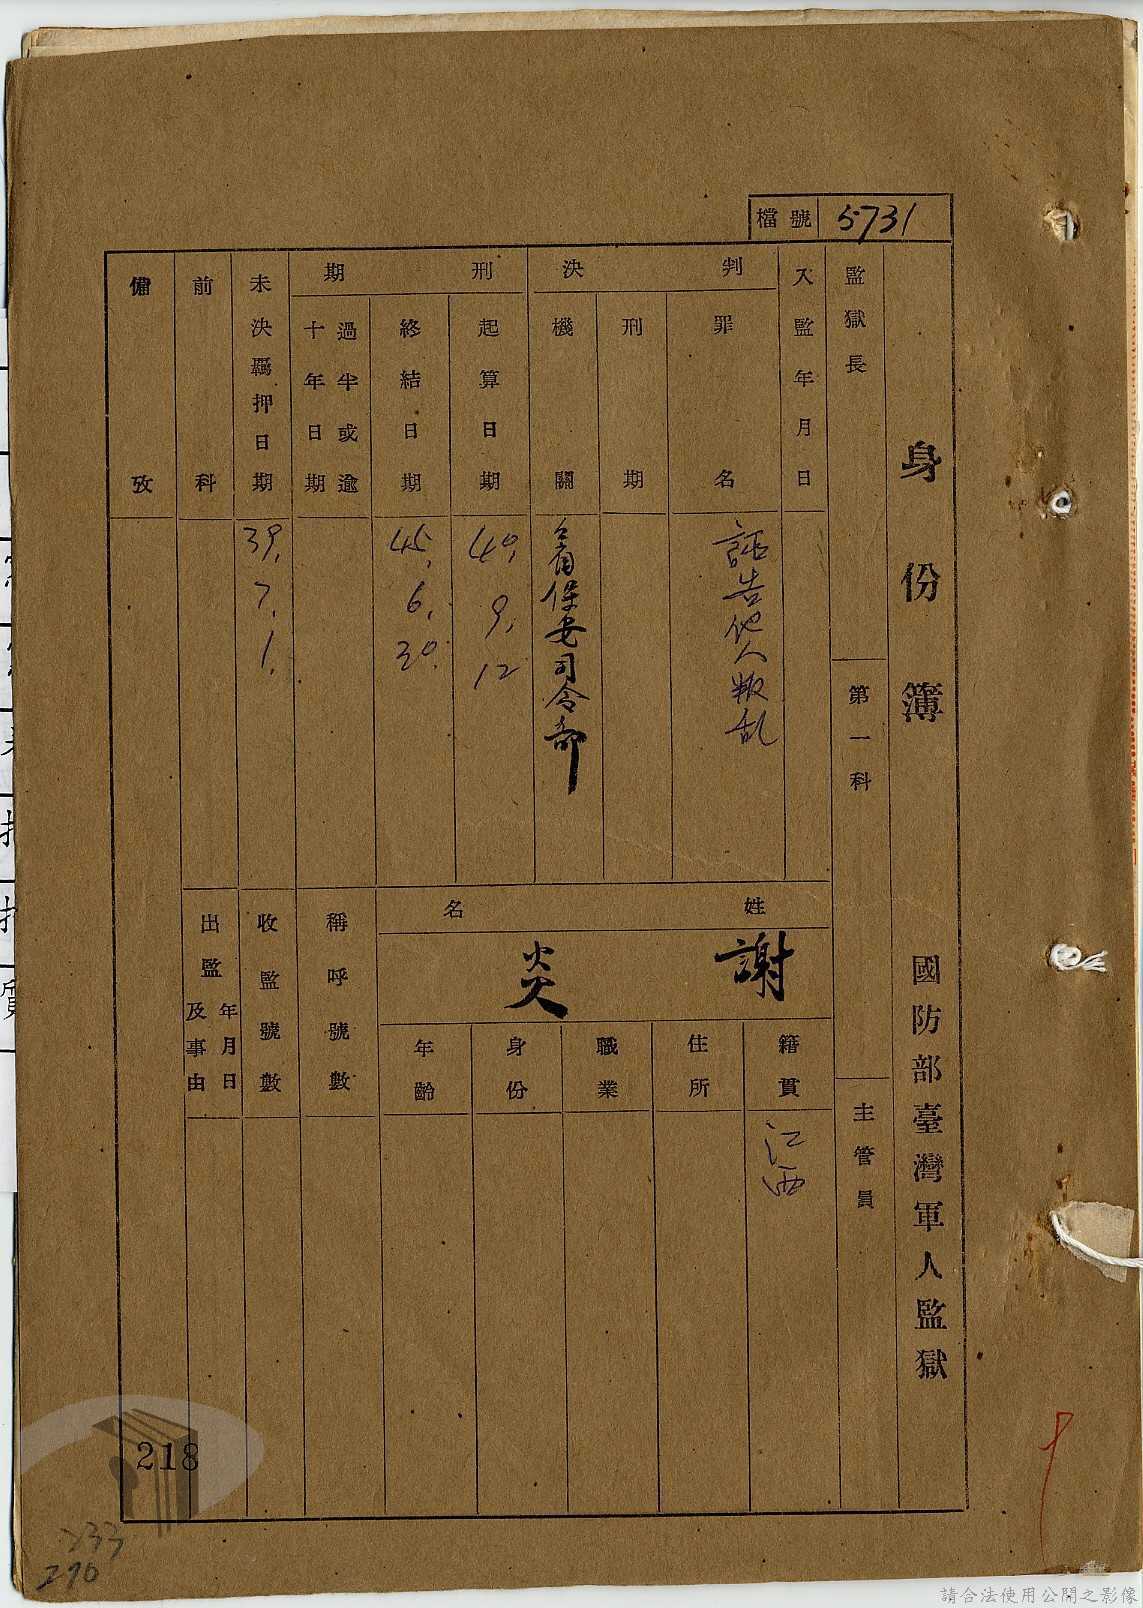 檔號 5731
身份簿 國防部臺灣軍人監獄
監獄長
第一科
主管員
入監年月日
判決
罪名 誣告他人叛乱
刑期
機關 台省保安司令部
刑期
起算日期 40. 9. 12
終結日期 45. 6. 30.
過半或逾十年日期
未決羈押日期 39. 7. 1.
前科
備攷
姓名
謝炎
籍貫 江西
住所
職業
身份
年齡
稱呼號數
收監號數
出監年月日及事由
218
233
290
請合法使用公開之影像